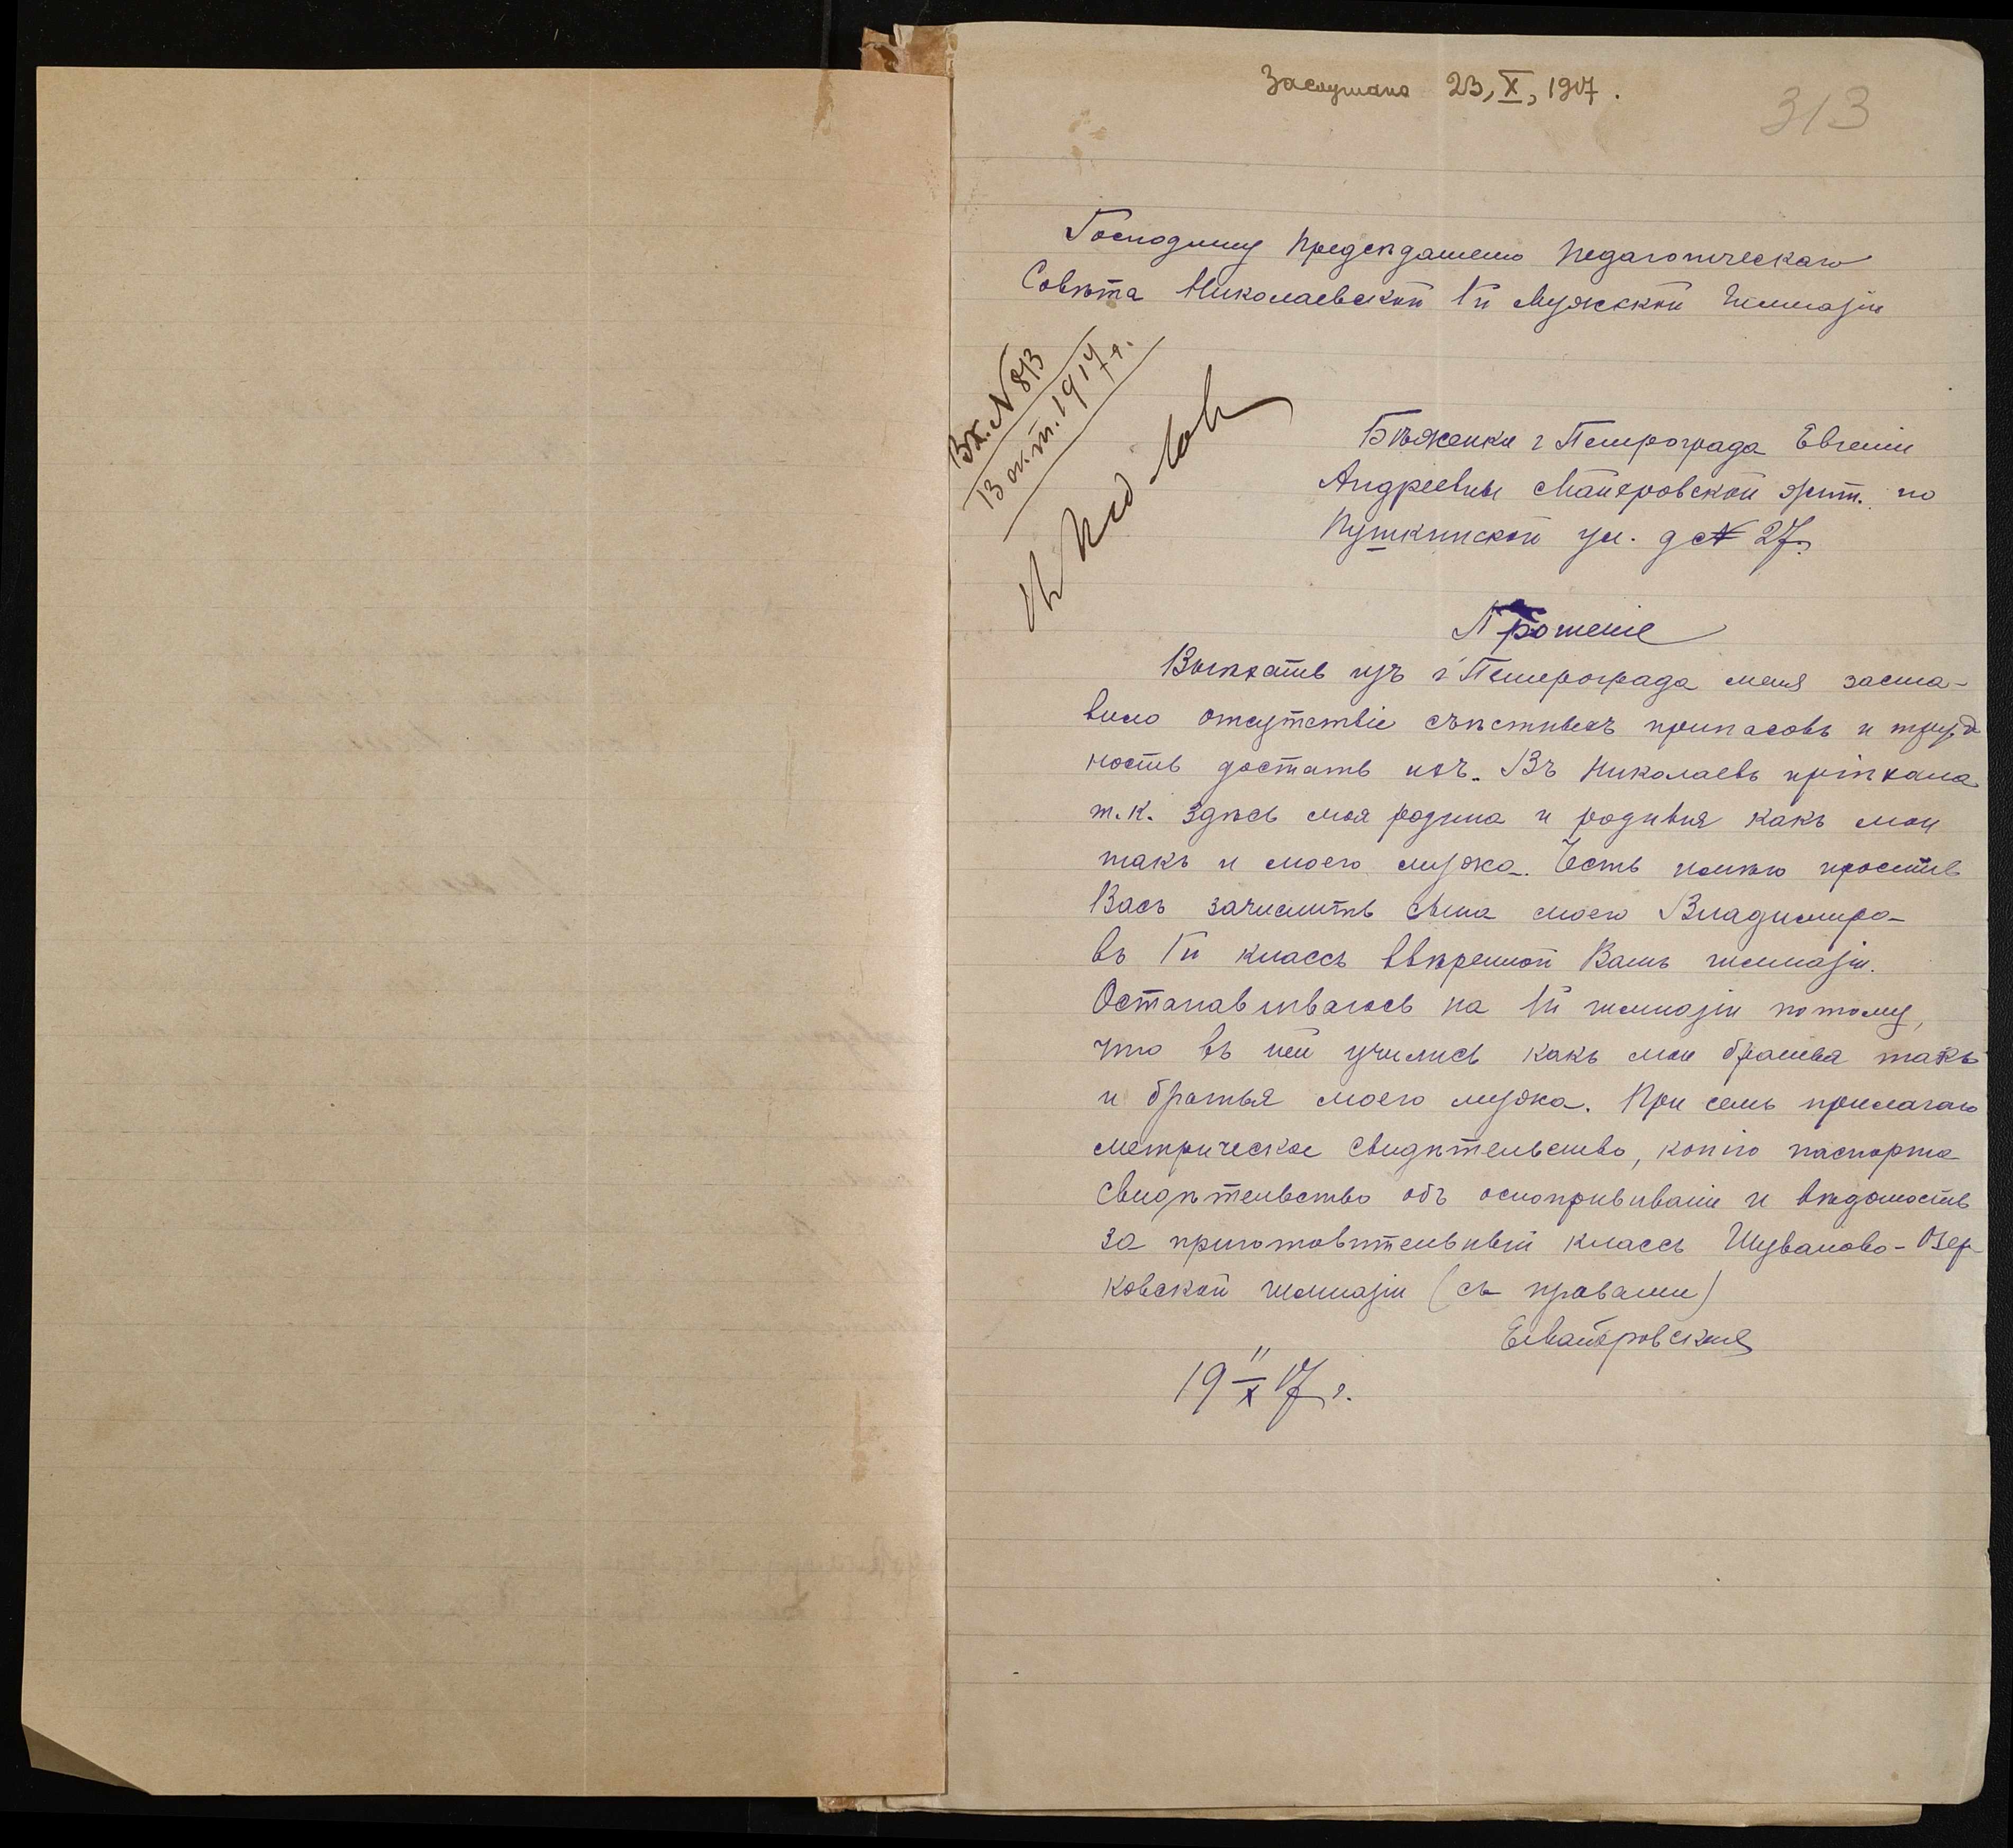 Заслушано 23, X, 1917.
313
Господину Предсѣдателю Педагогическаго
Совѣта Николаевской Iй Мужской Гимназіи
Вх. N 813
13 окт. 1917 г.
Бѣженки г Петрограда Евгеніи
Андреевны Маперовской жит. по
Пушкинской ул. д № 27.
Прошеніе
Выѣхать изъ г Петрограда меня заста-
вило отсутствіе съѣстныхъ припасовъ и труд
ность достать ихъ. Въ Николаевъ пріѣхала
т.к. здѣсь моя родина и родныя какъ мои
такъ и моего мужа. Честь имѣю просить
Васъ зачислить сына моего Владимира
въ Iй классъ ввѣренной Вамъ гимназіи.
Останавливаюсь на Iй гимназіи потому,
что въ ней учились какъ мои братья такъ
и братья моего мужа. При семъ прилагаю
метрическое свидѣтельство, копію паспорта
свидѣтельство объ оспопрививаніи и вѣдомость
за приготовительный классъ Шувалово-Озер-
ковской гимназіи (съ правами)
19 11/X 17 г.